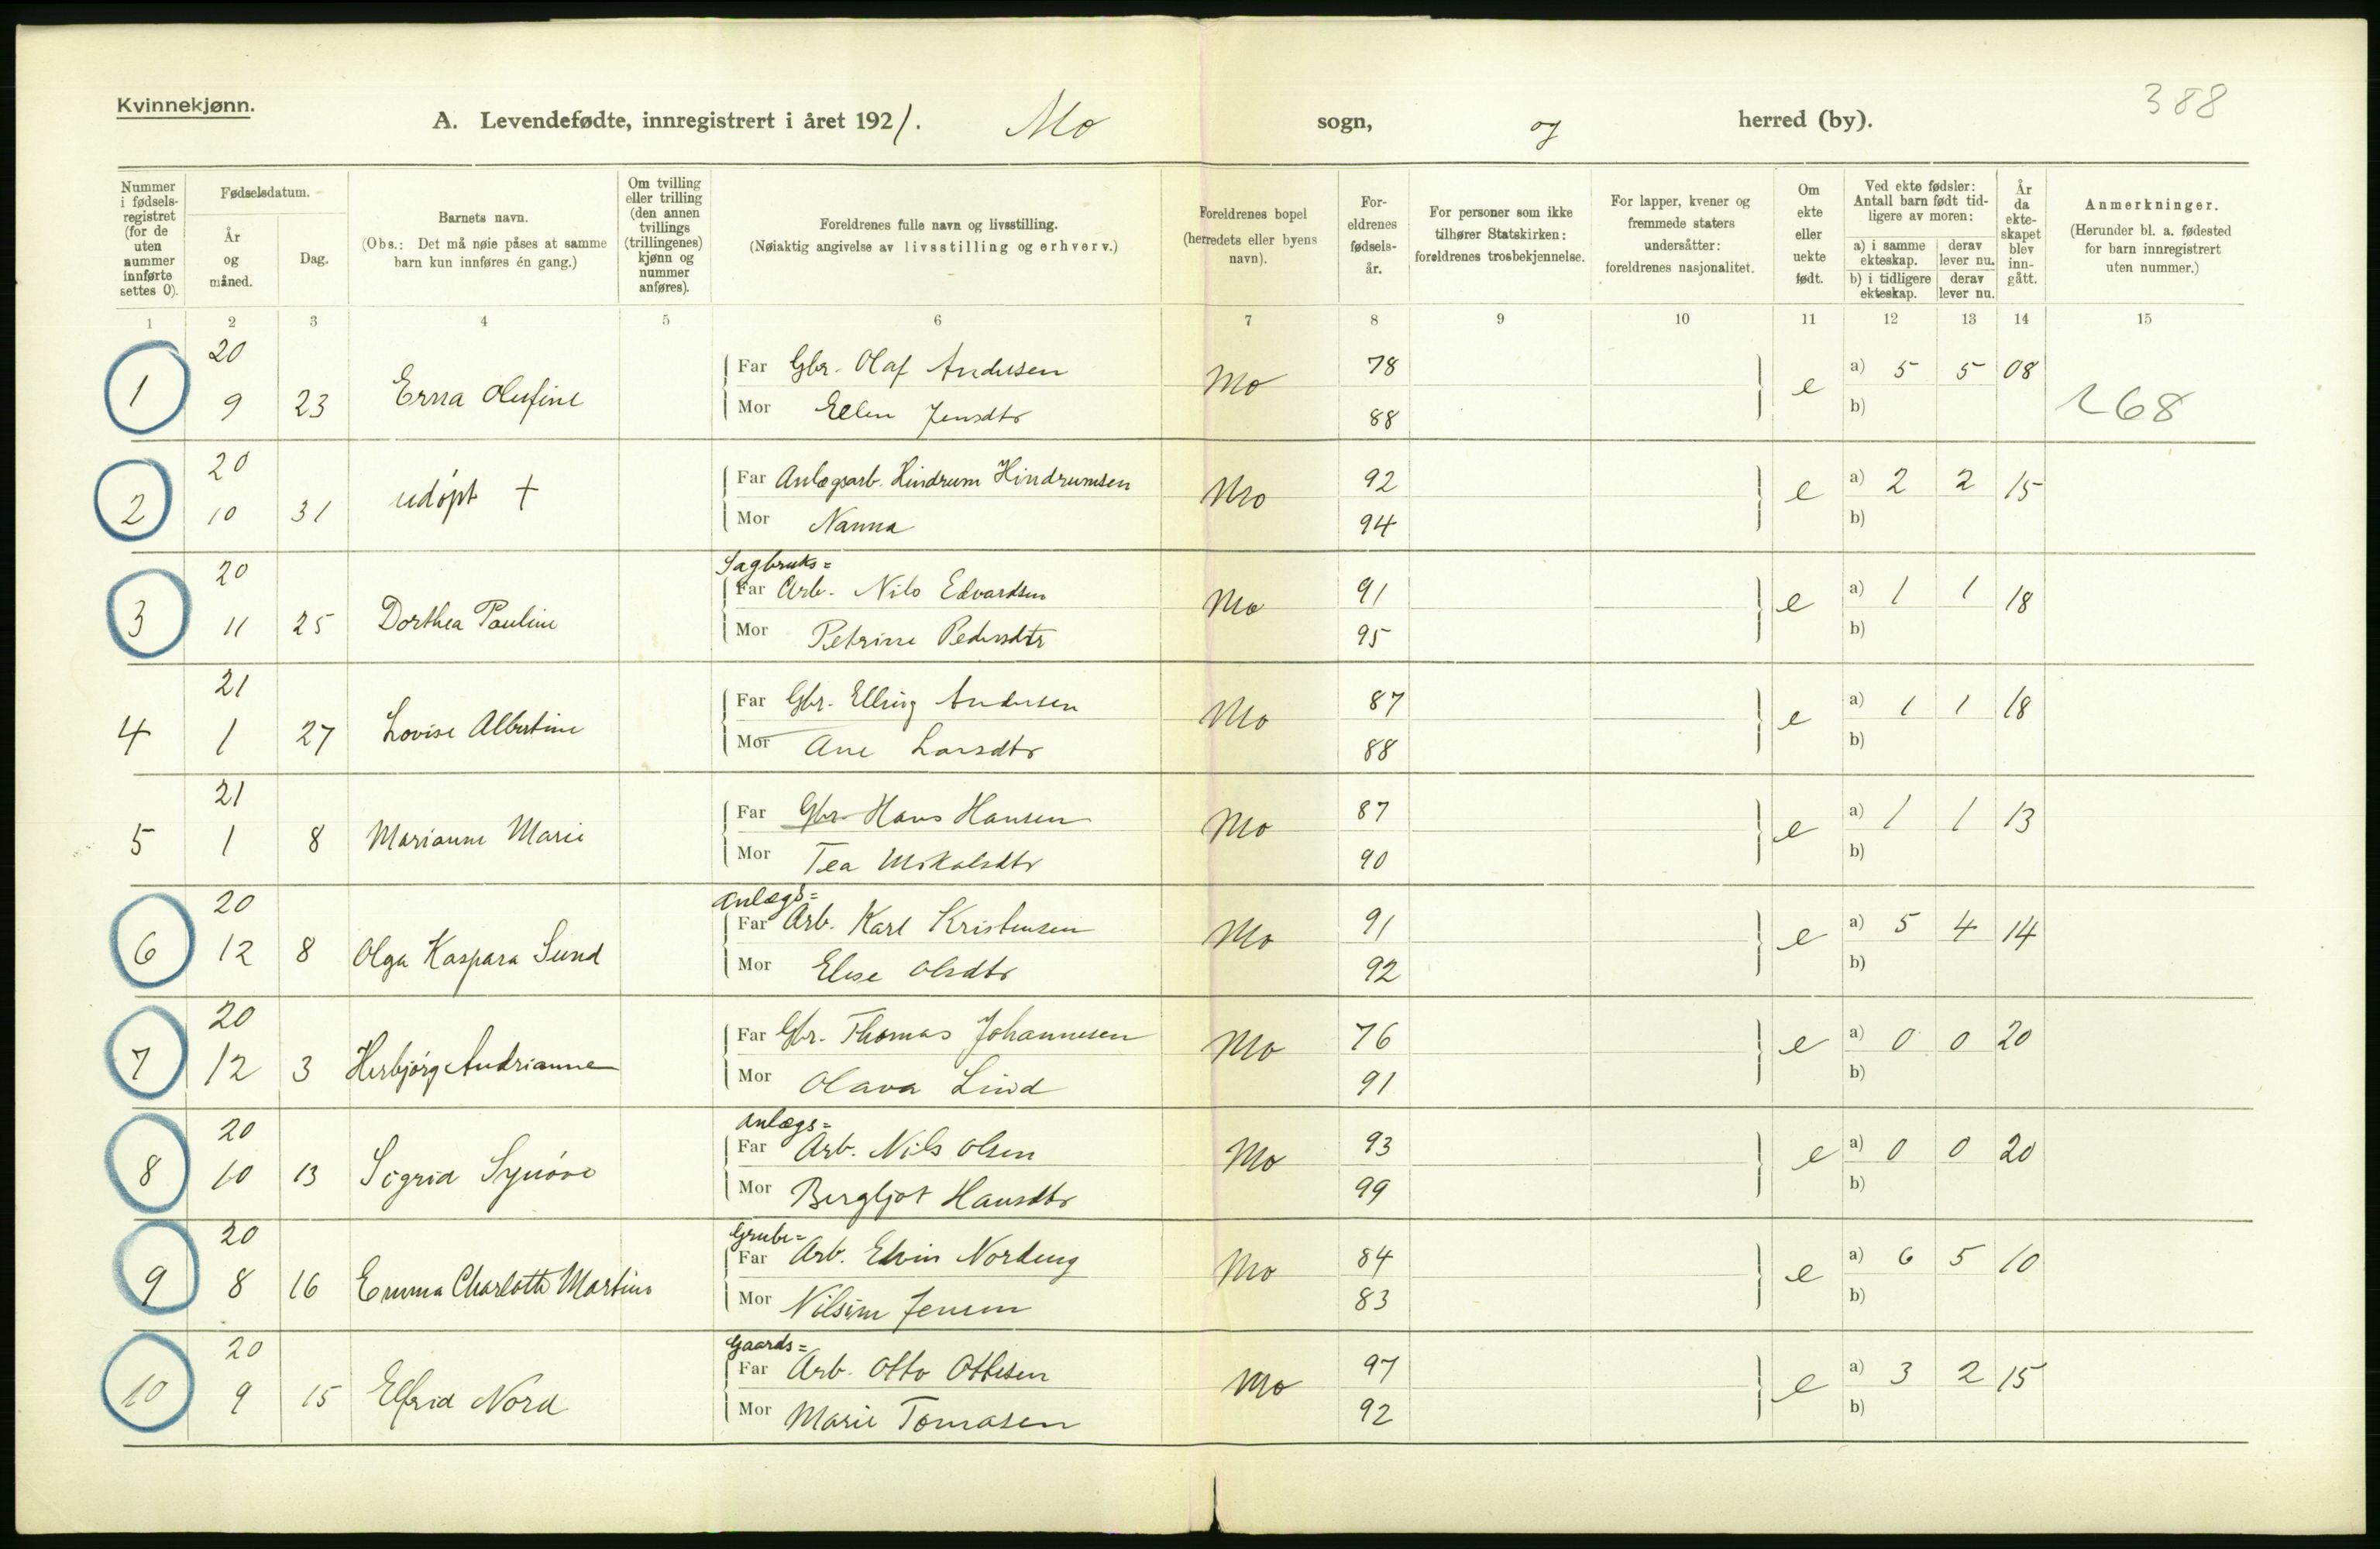 Kvinnekjønn.
388
A. Levendefødte, innregistrert i året 1921. Mo sogn, og herred (by).
Nummer i fødselsregistret (for de uten nummer innførte settes 0).
Fødselsdatum.
År og måned.
Dag.
Barnets navn.
(Obs.: Det må nøie påses at samme barn kun innføres én gang.)
Om tvilling eller trilling (den annen tvillings (trillingenes) kjønn og nummer anføres).
Foreldrenes fulle navn og livsstilling.
(Nøiaktig angivelse av livsstilling og erhverv.)
Foreldrenes bopel (herredets eller byens navn).
Foreldrenes fødselsår.
For personer som ikke tilhører Statskirken: foreldrenes trosbekjennelse.
For lapper, kvener og fremmede staters undersåtter: foreldrenes nasjonalitet.
Om ekte eller uekte født.
Ved ekte fødsler: Antall barn født tidligere av moren:
a) i samme ekteskap. derav lever nu.
b) i tidligere ekteskap. derav lever nu.
År da ekteskapet blev inngått.
Anmerkninger.
(Herunder bl. a. fødested for barn innregistrert uten nummer.)
1 2 3 4 5 6 7 8 9 10 11 12 13 14 15
1 20 9 23 Erna Olufine Far Gbr. Olaf Andersen Mo 78 e a) 5 5 08
Mor Ellen Jensdtr 88 b) 268
2 20 10 31 udöpt + Far Anlægsarb. Hindrum Hindrumsen Mo 92 e a) 2 2 15
Mor Nanna 94 b)
Sagbruks=
3 20 11 25 Dorthea Pauline Far Arb. Nils Edvardsen Mo 91 e a) 1 1 18
Mor Petrine Pedersdtr 95 b)
4 21 1 27 Lovise Albertine Far Gbr. Elling Andersen Mo 87 e a) 1 1 18
Mor Ane Larsdtr 88 b)
5 21 1 8 Marianne Marie Far Gbr. Hans Hansen Mo 87 e a) 1 1 13
Mor Tea Mikalsdtr 90 b)
Anlægs=
6 20 12 8 Olga Kaspara Sund Far Arb. Karl Kristensen Mo 91 e a) 5 4 14
Mor Elise Olsdtr 92 b)
7 20 12 3 Herbjörg Andrianne Far Gbr. Thomas Johannesen Mo 76 e a) 0 0 20
Mor Olava Lind 91 b)
Anlægs=
8 20 10 13 Sigrid Synöve Far Arb. Nils Olsen Mo 93 e a) 0 0 20
Mor Bergljot Hansdtr 99 b)
Grube=
9 20 8 16 Emma Charlotte Martine Far Arb. Edvin Nordeng Mo 84 e a) 6 5 10
Mor Nilsine Jensen 83 b)
Gaards=
10 20 9 15 Elfrid Nord Far Arb. Otto Ottesen Mo 97 e a) 3 2 15
Mor Marie Tomasen 92 b)